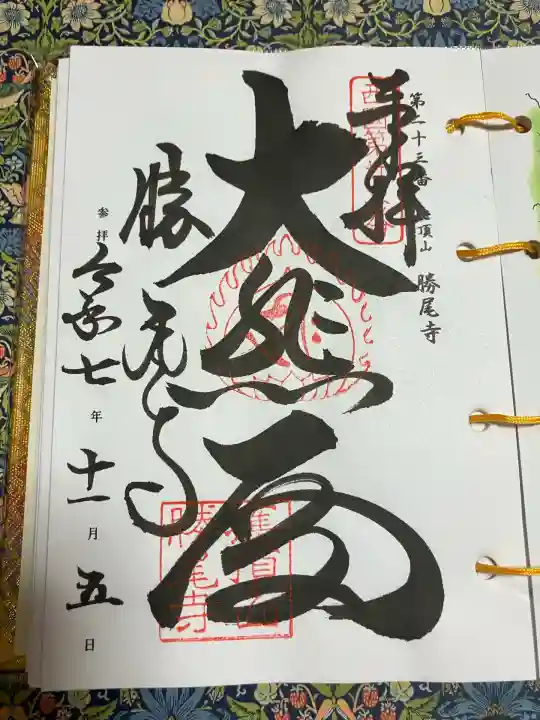 第二十三番 應頂山 勝尾寺
奉拝
大悲殿
勝尾寺
参拝 令和七年十一月五日
應頂山
勝尾寺